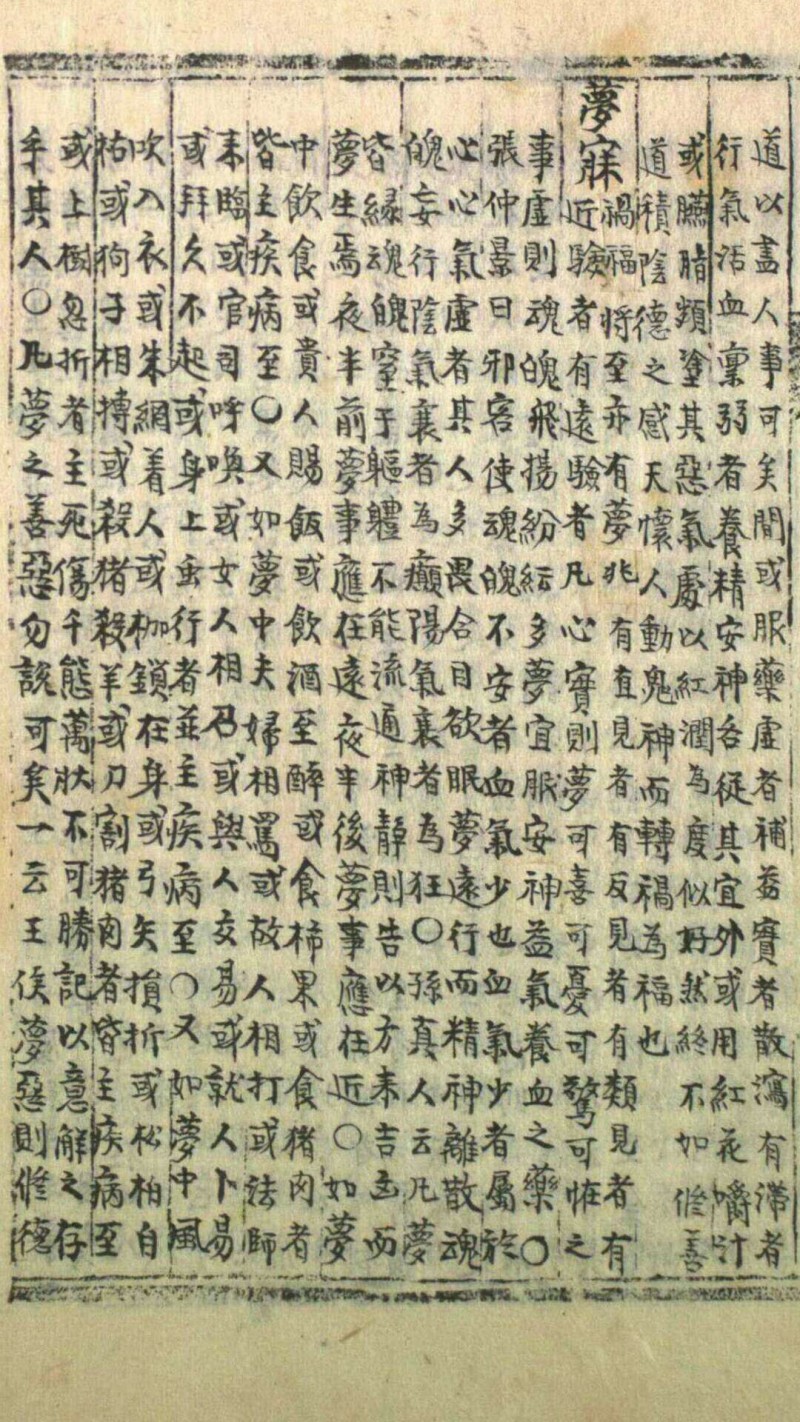 道以盡人事可矣間或服藥虛者補益實者散瀉有滯者
行氣活血稟弱者養精安神各從其宜外或用紅花嚼汁
或臙脂類塗其惡氣處以紅潤為度似好然終不如修善
道積陰德之感天懷人動鬼神而轉禍為福也
夢寐禍福將至亦有夢兆有直見者有反見者有類見者有
近驗者有遠驗者凡心實則夢可喜可憂可驚可恠之
事虛則魂魄飛揚紛紜多夢宜服安神益氣養血之藥〇
張仲景曰邪客使魂魄不安者血氣少也血氣少者屬於
心心氣虛者其人多畏合目欲眠夢遠行而精神離散魂
魄妄行陰氣衰者為癲陽氣衰者為狂〇孫真人云凡夢
皆緣魂魄窒于軀體不能流通神靜則告以方來吉凶而
夢生焉夜半前夢事應在遠夜半後夢事應在近〇如夢
中飲食或貴人賜飯或飲酒至醉或食柿果或食猪肉者
皆主疾病至〇又如夢中夫婦相罵或故人相打或法師
來臨或官司呼喚或女人相召或與人交易或就人卜易
或拜久不起或身上虫行者並主疾病至〇又如夢中風
吹入衣或朱網着人或枷鎖在身或弓矢損折或松柏白
枯或狗子相搏或殺猪殺羊或刀割猪肉者皆主疾病至
或上樹忽折者主死傷千態萬狀不可勝記以意解之存
乎其人〇凡夢之善惡勿說可矣一云王侯夢惡則修德